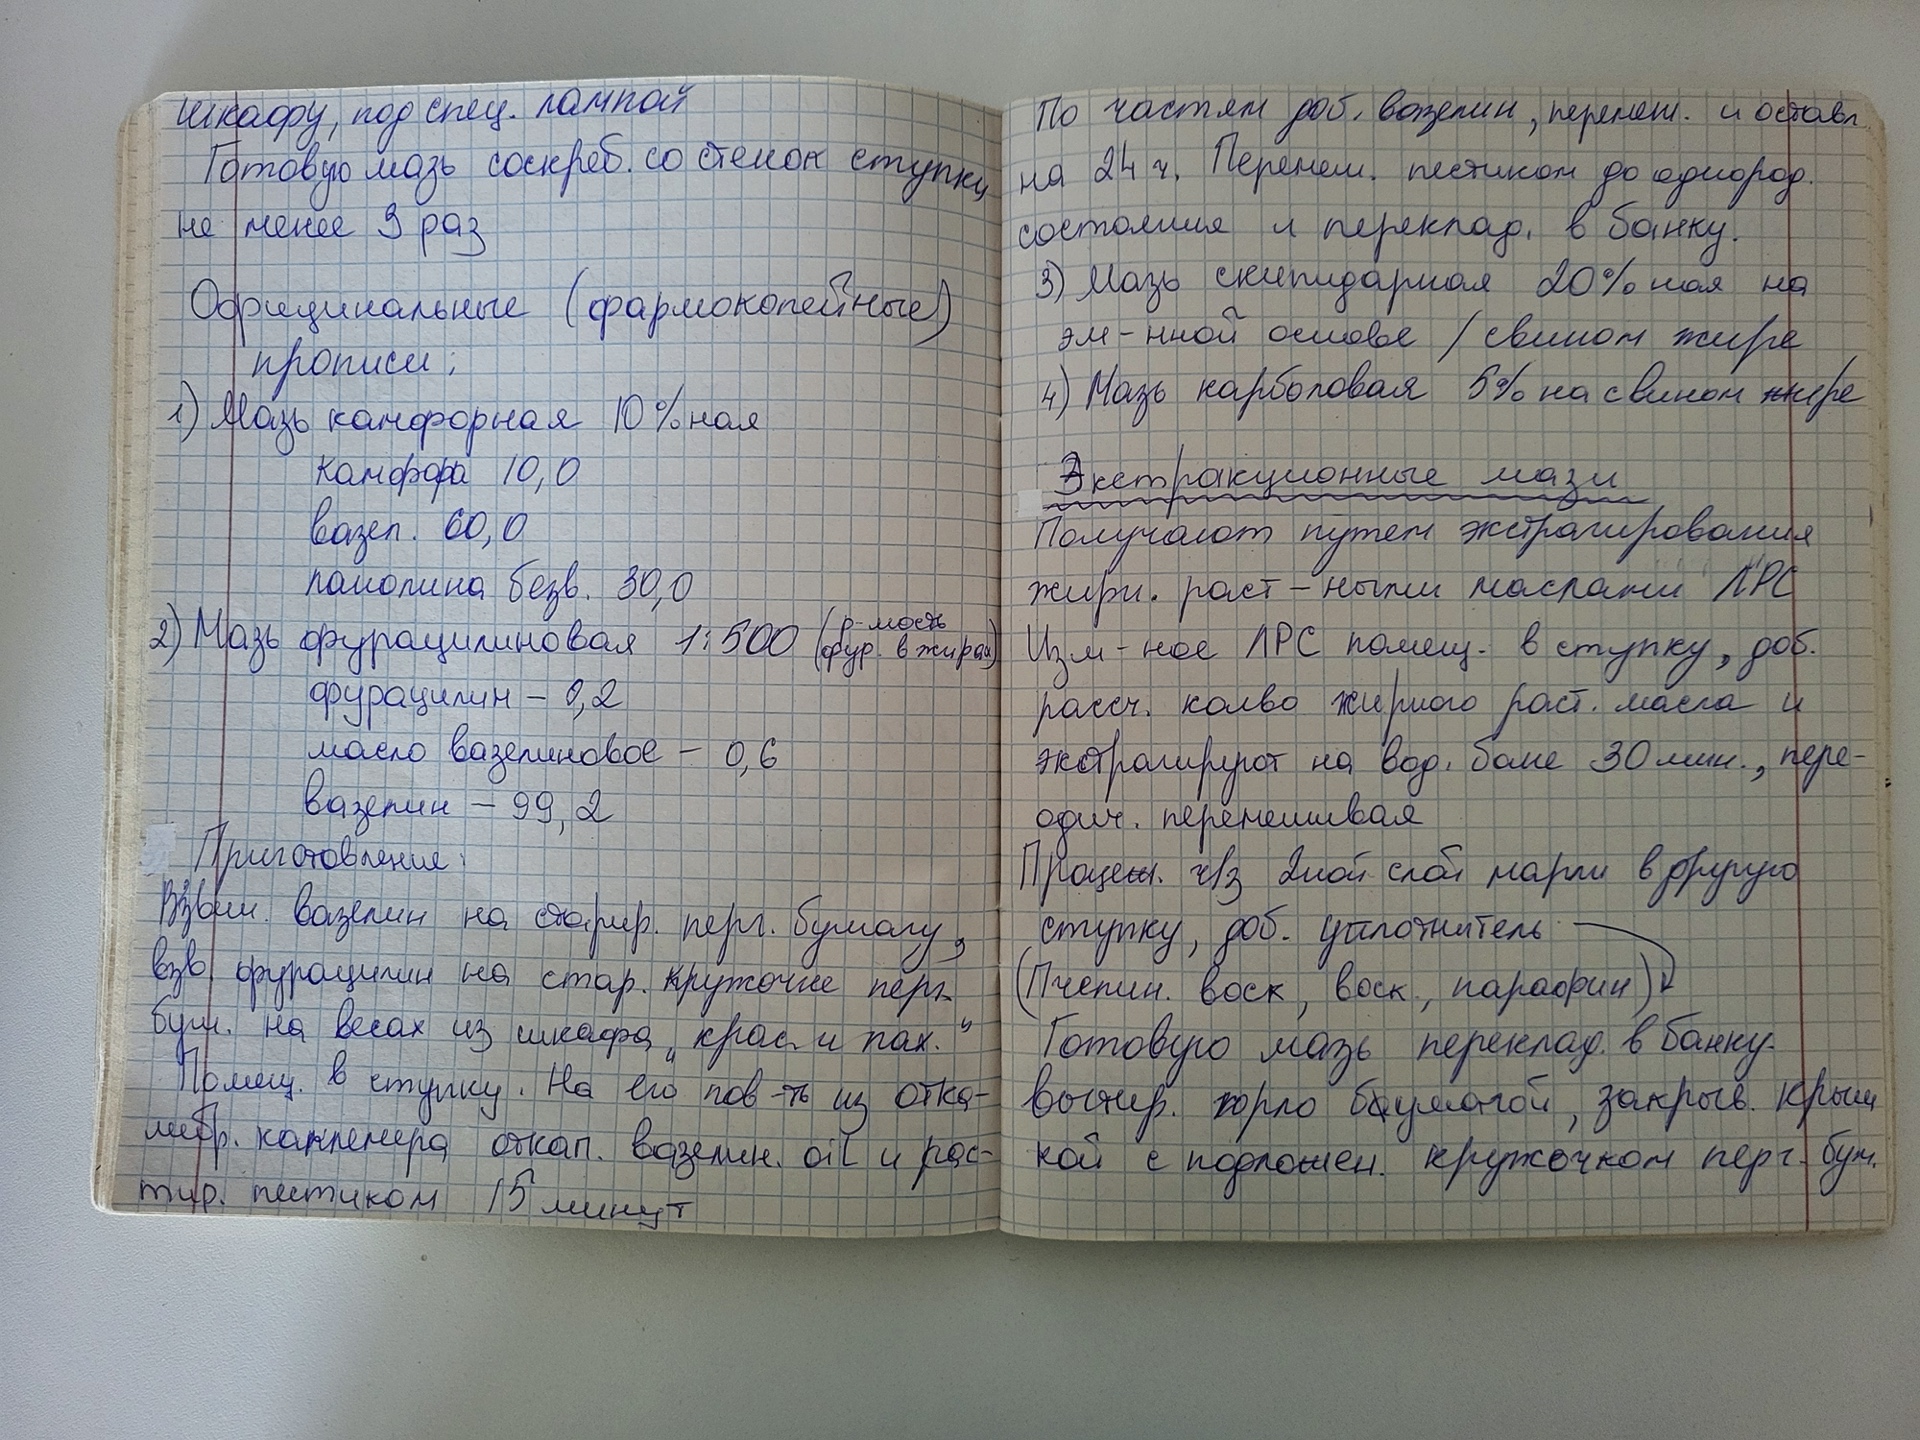 шкафу, под спец. лампой
Готовую мазь соскреб. со стенок ступки
не менее 3 раз
Официнальные (фармокопейные)
прописи:
1) Мазь камфорная 10%ная
камфора 10,0
вазел. 60,0
ланолина безв. 30,0
2) Мазь фурацилиновая 1:500 (р-мость
фур. в жирах)
фурацилин – 0,2
масло вазелиновое – 0,6
вазелин – 99,2
Приготовление:
Взвеш. вазелин на старир. перг. бумагу,
взв. фурацилин на стар. кружочке перг.
бум. на весах из шкафа „крас. и пах."
Помещ. в ступку. На его пов-ть из отка-
либр. каплемера откап. вазелин. oil и рас-
тир. пестиком 15 минут
По частям доб. вазелин, перемеш. и оставл.
на 24 ч. Перемеш. пестиком до однород.
состояния и переклад. в банку.
3) Мазь скипидарная 20%ная на
эм-нной основе / свином жире
4) Мазь карболовая 5% на свином жире
Экстракционные мази
Получают путем экстрагирования
жирн. раст-ными маслами ЛРС
Изм-ное ЛРС помещ. в ступку, доб.
рассч. колво жирного раст. масла и
экстрагируют на вод. бане 30 мин., пере-
одич. перемешивая
Процеж. ч/з 2ной слой марли в другую
ступку, доб. уплотнитель
(Пчелин. воск, воск., парафин)
Готовую мазь переклад. в банку.
вытир. горло бумагой, закрыв. крыш
кой с подложен. кружочком перг. бум.